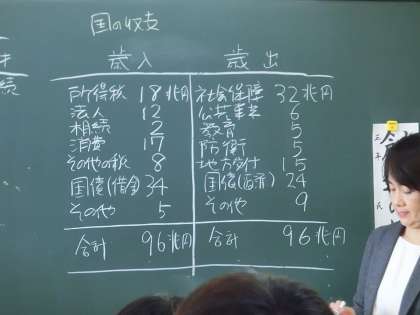 国の収支
歳入 歳出
所得税 18兆円 社会保障 32兆円
法人 12 公共事業 6
相続 2 教育 5
消費 17 防衛 5
その他の税 8 地方交付 15
国債(借金)34 国債(返済)24
その他 5 その他 9
合計 96兆円 合計 96兆円
続